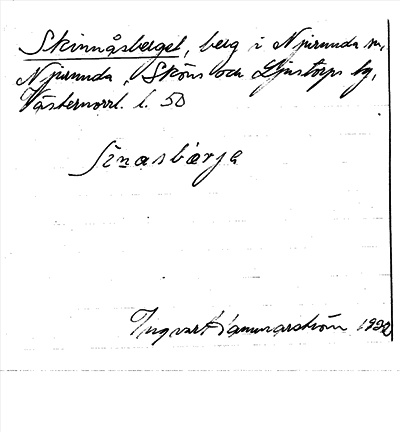 Skinnåsberget, berg i Njurunda sn,
Njurunda, Sköns och Ljustorps tg,
Västernorrl. l. 50
Sinasbärje
Ingvar Hammarström 1932